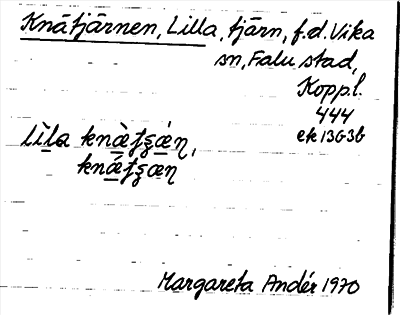 Knätjärnen, Lilla, tjärn, f.d. Vika
sn, Falu stad,
Kopp.l.
444
ek 13G3b
lìla knæ̀ʈʂǽɳ,
knǽʈʂæɳ
Margareta Andér 1970